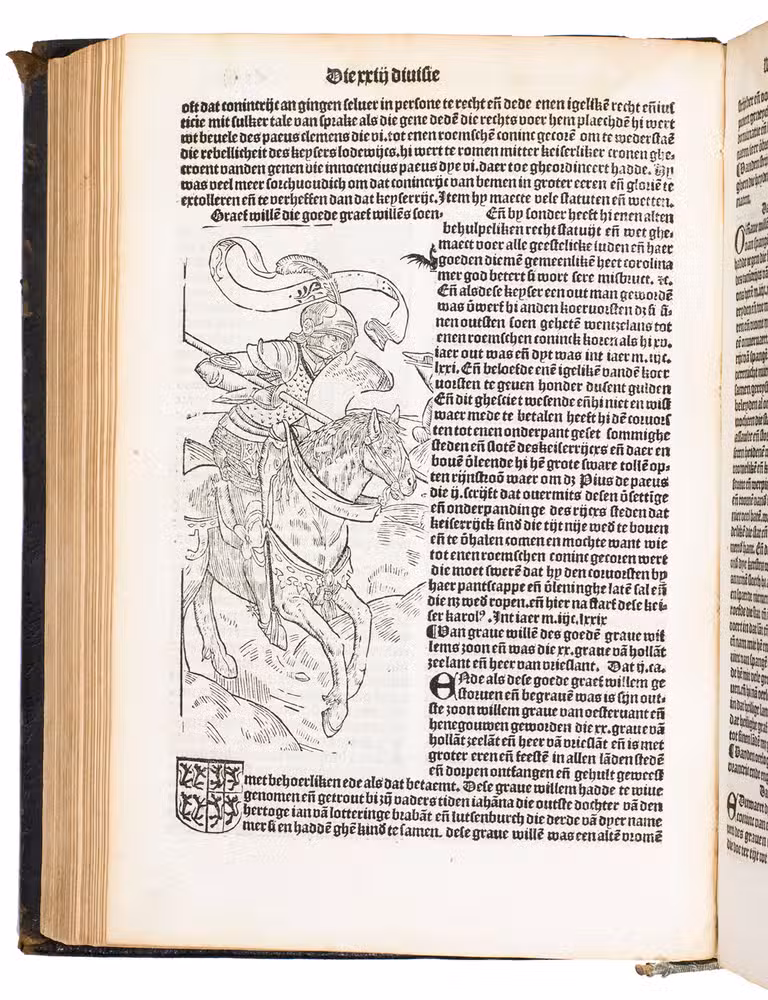 Die xxiij diuisie
oft dat conincrijc an gingen seluer in persone te recht eñ dede enen igelikẽ recht eñ ius
ticie mit sulker tale van sprake als die gene dedẽ die rechts voer hem plaechdẽ hi wert
wt beuele des paeus clemens die vi. tot enen roemschẽ coninc gecorẽ om te wederstaẽ
die rebellicheit des keysers lodewijcs. hi wert te romen mitter keiserliker cronen ghe⸗
croent vanden genen die innocentius paeus dye vi. daer toe gheordineert hadde. Hy
was veel meer sorchuoudich om dat conincrijc van bemen in groter eeren eñ gloriẽ te
extolleren eñ te verheffen dan dat keyserrijc. Item hy maecte vele statuten eñ wetten.
Graef willẽ die goede graef willẽs soen⸗
Eñ by sonder heeft hi enen alten
behulpeliken recht statuijt eñ wet ghe⸗
maect voer alle geestelicke luden eñ haer
goeden die mẽ gemeenlikẽ heet corolina
mer god betert si wort sere misbruct. ⁊c.
Eñ als dese keyser een out man gewordẽ
was õwerf bi anden koervorsten dz si si⸗
nen outsten soen gehetẽ wentzelaus tot
enen roemschen coninck koren als hi xv.
iaer out was eñ dyt was int iaer m. iijc.
lxxi. Eñ beloefde enẽ igelikẽ vandẽ koer
vorsten te geuen honder dusent gulden
Eñ dit ghesciet wesende eñ hi niet en wist
waer mede te betalen heeft hi dẽ coruors
ten tot enen onderpant geset sommighe
steden eñ slotẽ des keiserrijcxs eñ daer en
bouẽ õleende hi hẽ grote sware tollẽ op⸗
ten rijnstroõ waer om dz Pius de paeus
die ij. scrijft dat ouermits desen õsettige
eñ onderpandinge des rijcxs steden dat
keiserrijck sind die tijt nije wed te bouen
eñ te õhalen comen en mochte want wie
tot enen roemschen coninc gecoren wert
die moet swerẽ dat hy den coruorsten by
haer pantscappe eñ õleninghe latẽ sal eñ
die nz wed ropen. eñ hier na starf dese kei⸗
ser karolꝰ. Int iaer m. iijc. lxxix
¶Van graue willẽ des goedẽ graue wil
lems zoon eñ was die xx. graue vã hollãt
zeelant eñ heer van vrieslant. Dat ij. ca.
ENde als dese goede graef willem ge
storuen eñ begrauẽ was is sijn out⸗
ste zoon willem graue van oesteruant eñ
henegouwen geworden die xx. graue vã
hollãt zeelãt eñ heer vã vrieslãt eñ is met
groter eren eñ feestẽ in allen lãden stedẽ
eñ dorpen ontfangen eñ gehult geweest
met behoerliken ede als dat betaemt. Dese graue willem hadde te wiue
genomen eñ getrout bi zijn vaders tiden iahãna die outste dochter vã den
hertoge ian vã lotteringe brabãt eñ lutsenburch die derde vã dyer name
mer si en haddẽ ghẽ kind te samen. dese graue willẽ was een altẽ vromẽ